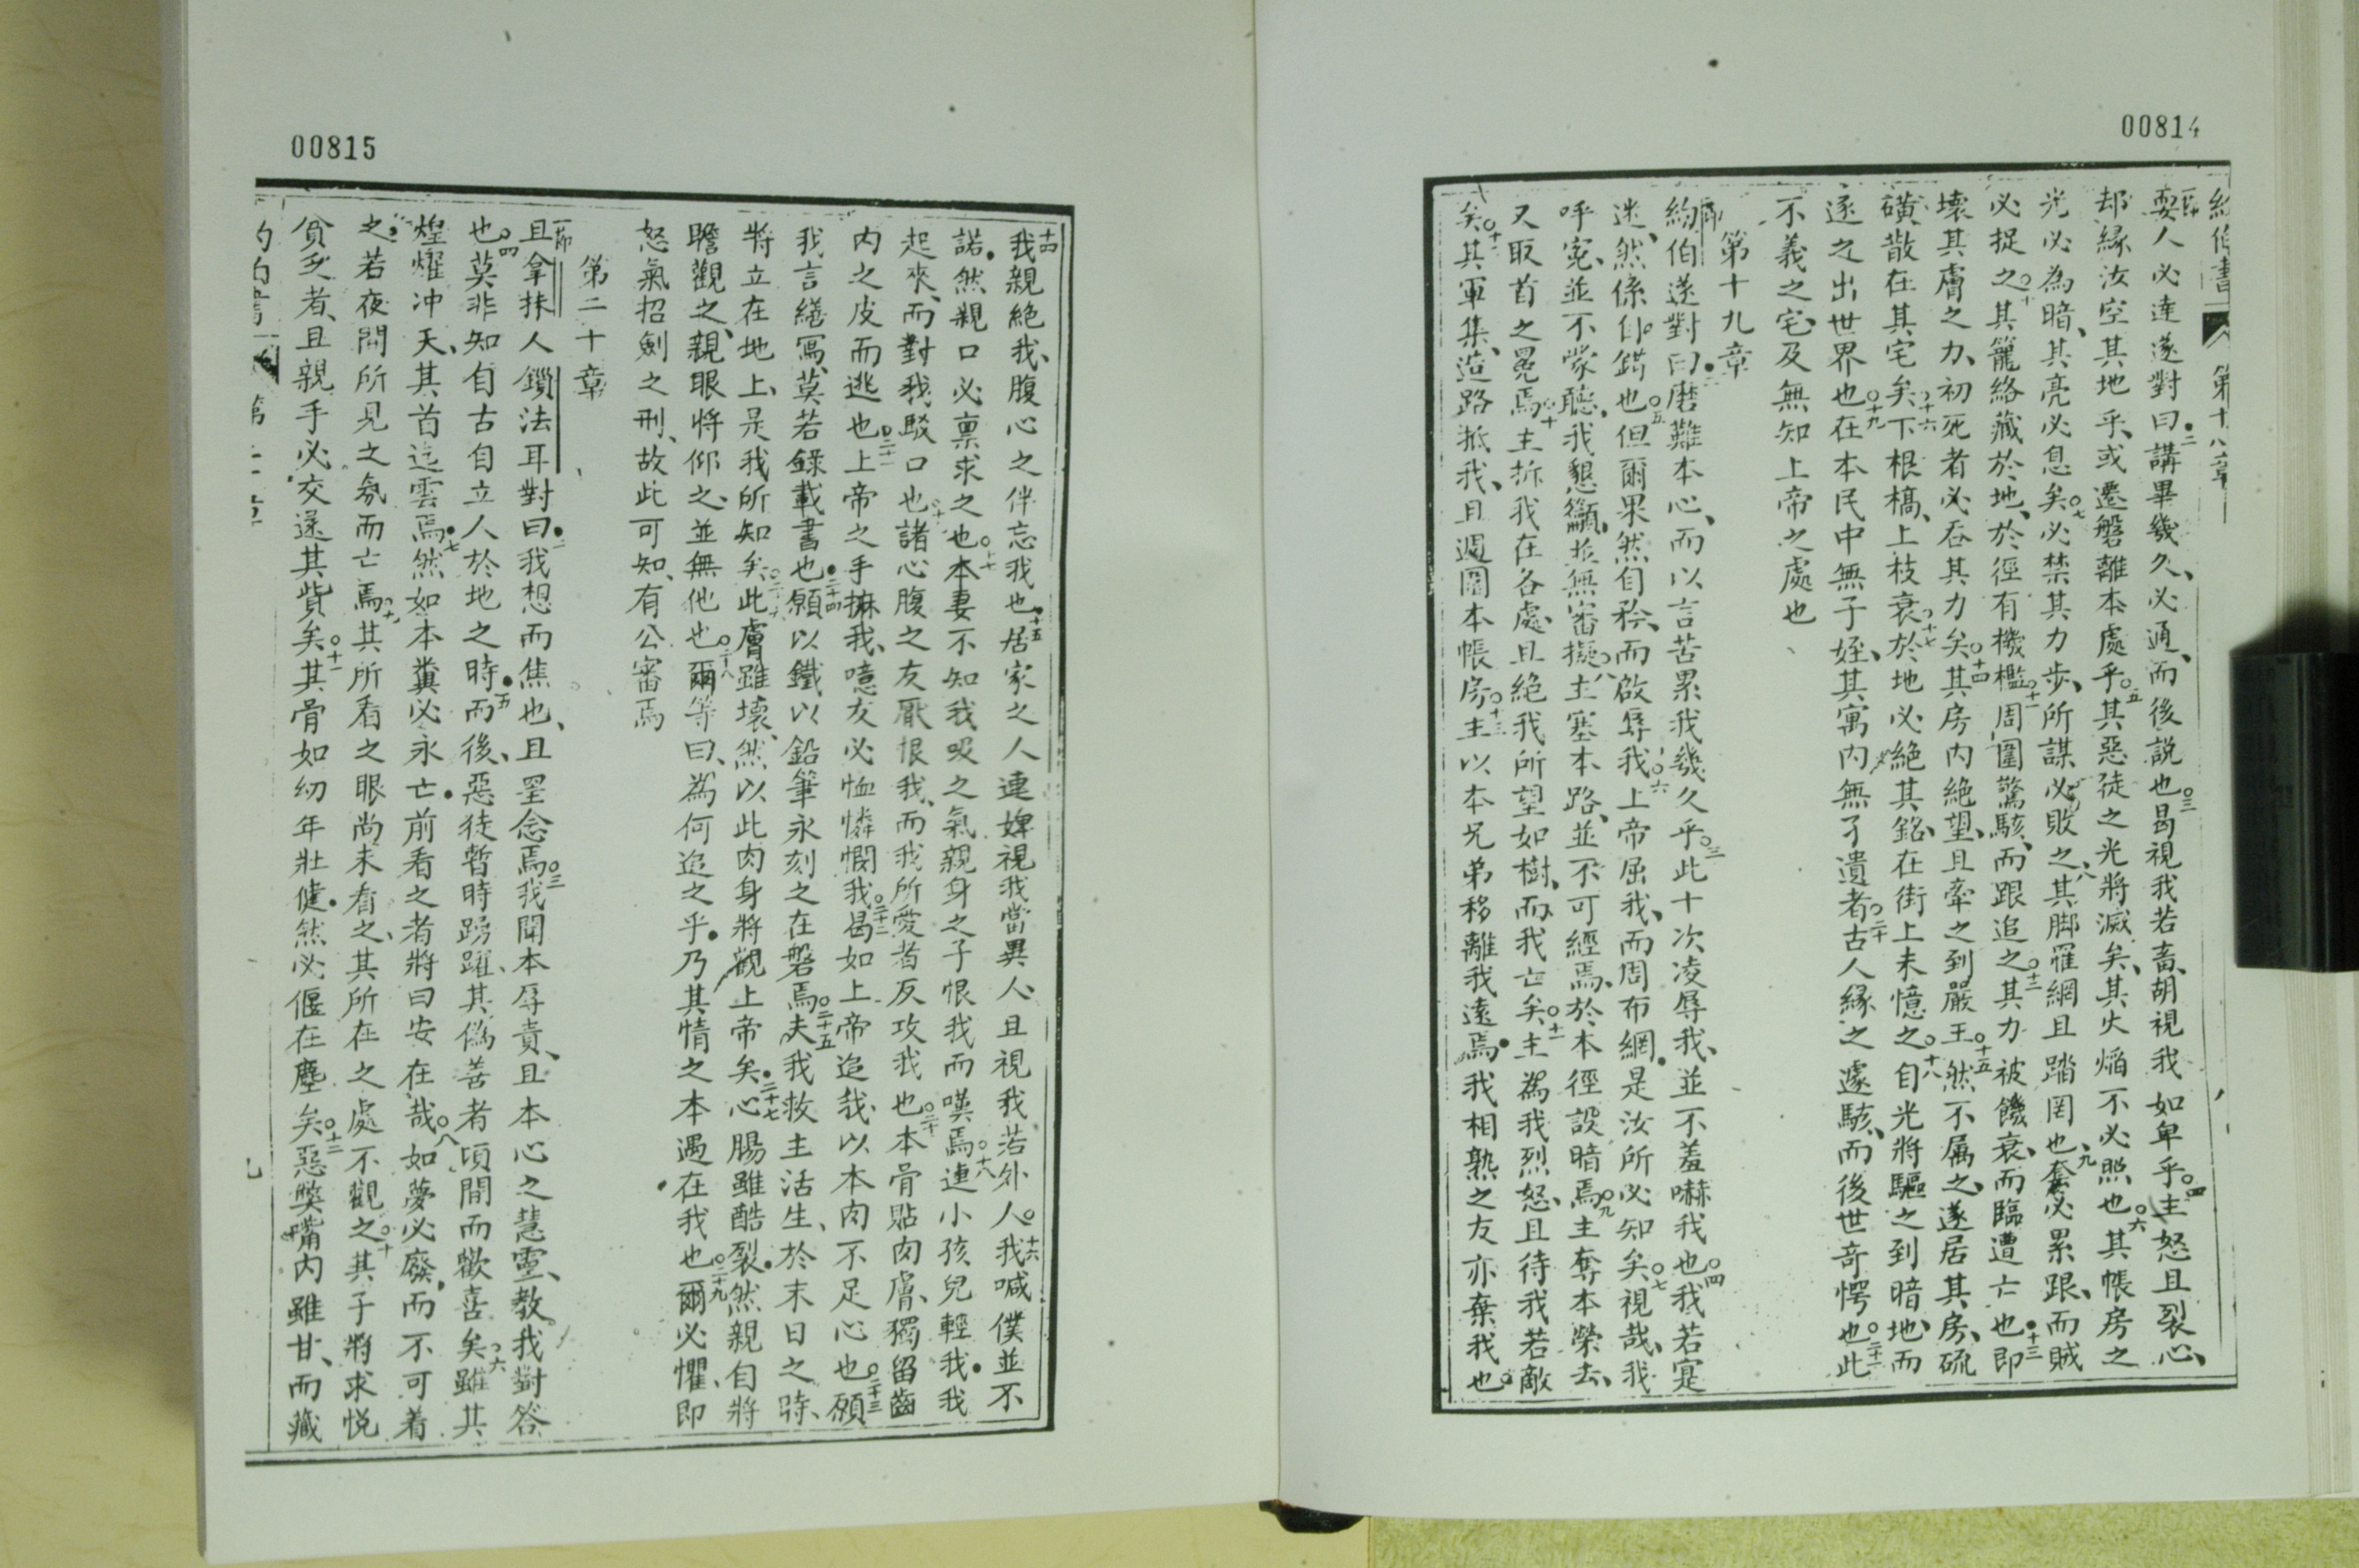 00814
約伯書 第十八章
耍人必達遂對曰講畢幾久必通而後説也曷視我若畜胡視我如卑乎主怒且裂心
却緣汝空其地乎或遷磐離本處乎其惡徒之光將滅矣其火焰不必照也其帳房之
光必為暗其亮必息矣必禁其力步所謀必敗之其脚罹網且踏罔也套必累跟而賊
必捉之其籠絡藏於地於徑有機檻周圍驚駭而跟追之其力被饑衰而臨遭亡也即
壞其膚之力初死者必吞其力矣其房內絕望且牽之到嚴王然不屬之遂居其房硫
磺散在其宅矣下根槁上枝衰於地必絕其銘在街上未憶之自光將驅之到暗地而
逐之出世界也在本民中無子姪其寓內無孑遺者古人緣之遽駭而後世奇愕也此
不義之宅及無知上帝之處也
第十九章
約伯遂對曰磨難本心而以言苦累我幾久乎此十次凌辱我並不羞嚇我也我若寔
迷然係自錯也但爾果然自矜而啟辱我上帝屈我而周布網是汝所必知矣視哉我
呼寃並不蒙聽我懇籲並無審擬主塞本路並不可經焉於本徑設暗焉主奪本榮去
又取首之冕焉主拆我在各處且絕我所望如樹而我亡矣主為我烈怒且待我若敵
矣其軍集造路抵我且週圍本帳房主以本兄弟移離我遠焉我相熟之友亦棄我也
00815
我親絕我腹心之伴忘我也居家之人連婢視我當異人且視我若外人我喊僕並不
諾然親口必禀求之也本妻不知我吸之氣親身之子恨我而嘆焉連小孩兒輕我我
起來而對我駁口也諸心腹之友厭恨我而我所愛者反攻我也本骨貼肉膚獨留齒
內之皮而逃也上帝之手擵我噫友必恤憐憫我曷如上帝追我以本肉不足心也願
我言繕寫莫若錄載書也願以鐵以鉛筆永刻之在磐焉夫我救主活生於末日之時
將立在地上是我所知矣此膚雖壞然以此肉身將觀上帝矣心腸雖酷裂然親自將
瞻觀之親眼將仰之並無他也爾等曰為何追之乎乃其情之本遇在我也爾必懼即
怒氣招劍之刑故此可知有公審焉
第二十章
且拿抹人鎖法耳對曰我想而焦也且罣念焉我聞本辱責且本心之慧靈教我對答
也莫非知自古自立人於地之時而後惡徒暫時踴躍其偽善者頃間而歡喜矣雖其
煌燿冲天其首迄雲焉然如本糞必永亡前看之者將曰安在哉如夢必廢而不可着
之若夜間所見之氛而亡焉其所看之眼尚未看之其所在之處不觀之其子將求悦
貧乏者且親手必交遂其貲矣其骨如幼年壯健然必偃在塵矣惡獘嘴內雖甘而藏